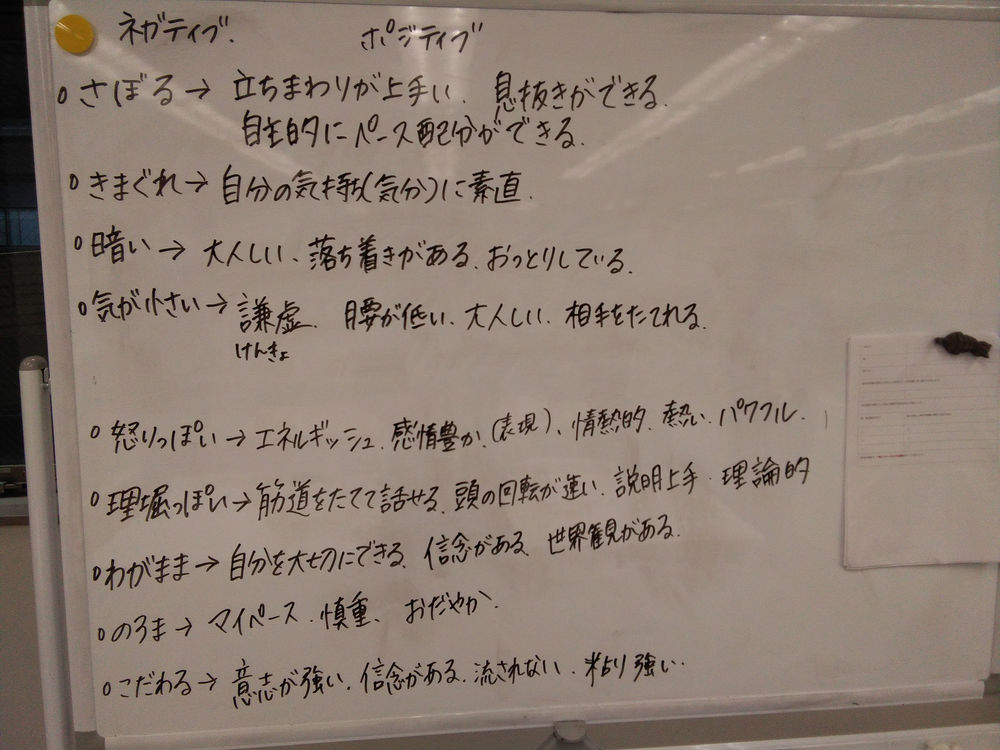 ネガティブ. ポジティブ
○さぼる→ 立ちまわりが上手い、息抜きができる.
自主的にペース配分ができる.
○きまぐれ→自分の気持ち(気分)に素直.
○暗い→ 大人しい、落ち着きがある、おっとりしている.
○気が小さい→謙虚、腰が低い、大人しい、相手をたてれる.
けんきょ
○怒りっぽい→エネルギッシュ、感情豊か(表現)、情熱的、熱い、パワフル、
○理堀っぽい→筋道をたてて話せる、頭の回転が速い、説明上手・理論的
○わがまま→自分を大切にできる、信念がある、世界観がある.
○のろま→マイペース、慎重、おだやか.
○こだわる→意志が強い、信念がある、流されない、粘り強い.